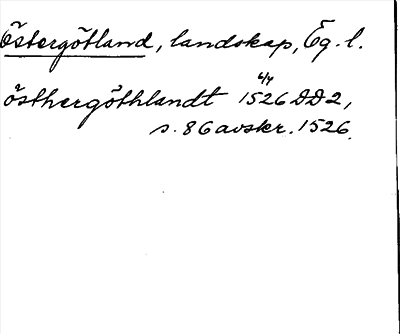 Östergötland, landskap, Ög. l.
östhergöthlandt 1526 6/4 DD2,
s. 86 avskr. 1526.